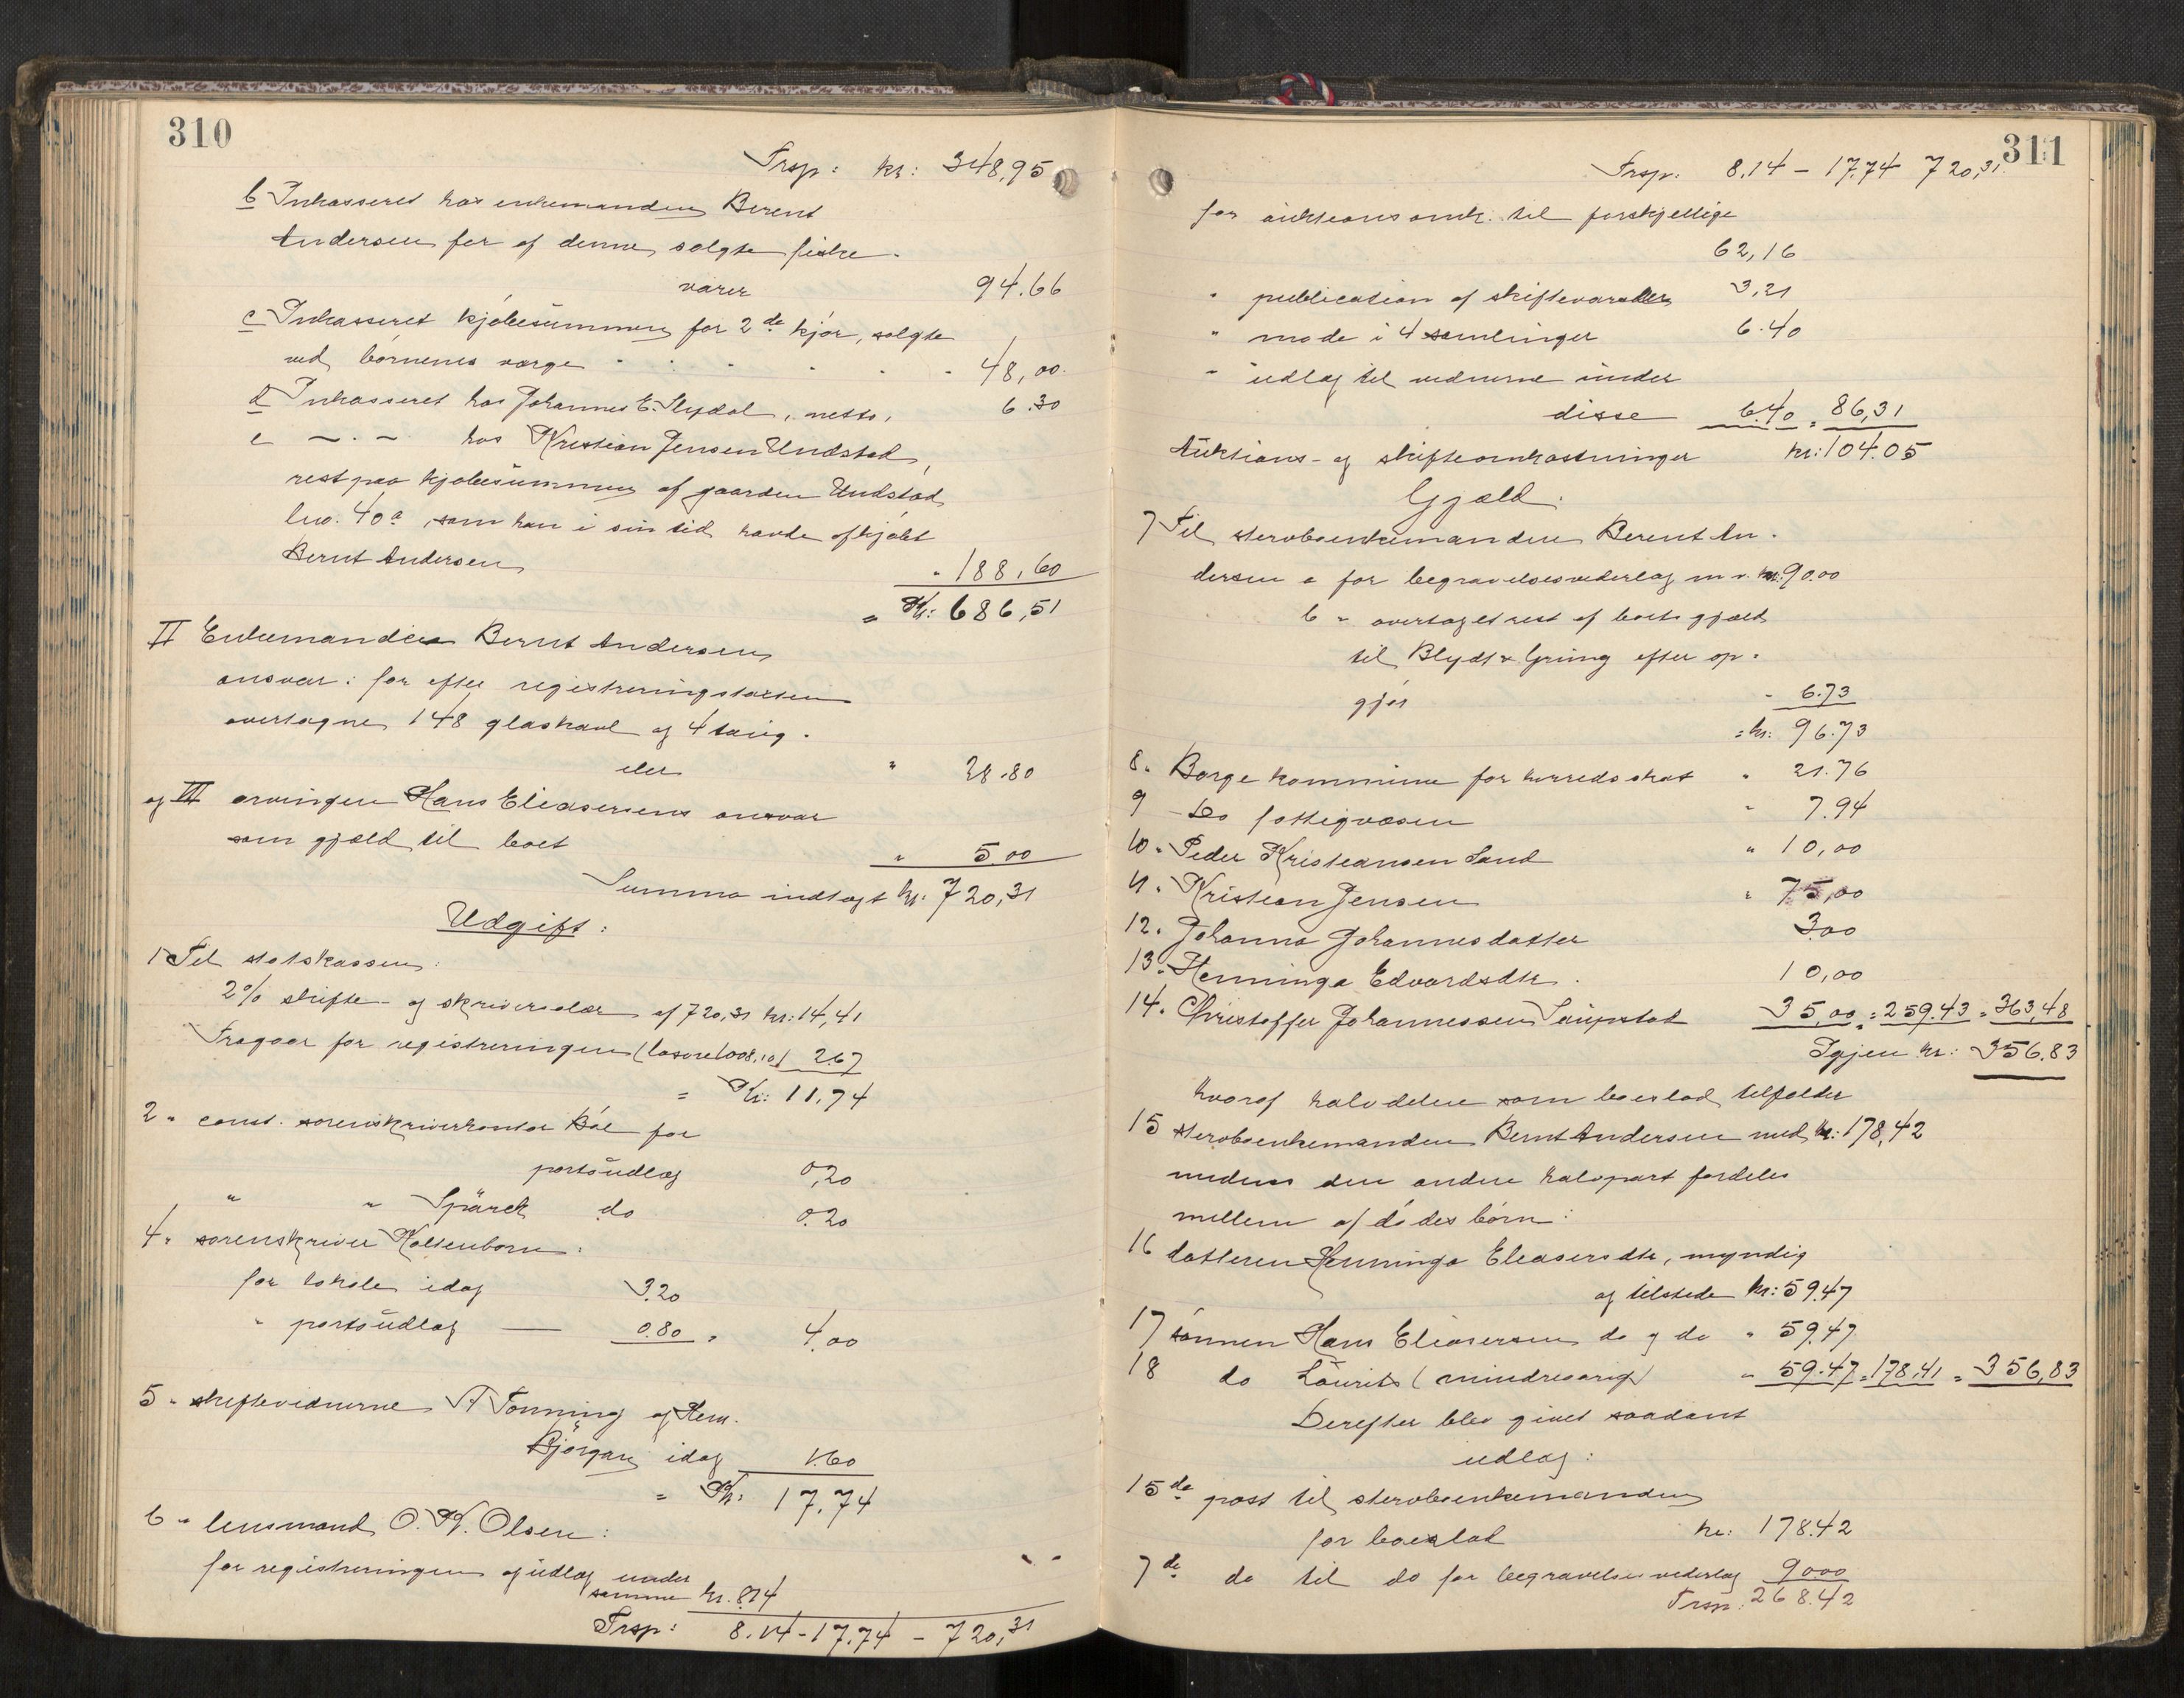 310
Trsp: kr: 348,95
b Inkasseret hos enkemanden Berent
Andersen for af denne solgte fiske-
varer 94.66
c Inkasseret kjøbesummen for 2de kjør, solgte
ved børnenes værge " 48,00
d Inkasseret hos Johannes E. Slydal, netto, 6.30
e — . — hos Kristian Jensen Undstad,
rest paa kjøbesummen af gaarden Undstad
lno. 40a, som han i sin tid havde afkjøbt
Bernt Andersen " 188,60
= Kr: 686,51
II Enkemanden Bernt Andersens
ansvar: for efter registreringstaxten
overtagne 148 glaskavl og 4 taug-
eler " 28.80
og III arvingen Hans Eliasersens ansvar
som gjæld til boet " 5.00
Summa indtægt kr: 720,31
Udgift:
1 Til statskassen:
2% skifte- og skriversalær af 720,31 kr: 14,41
Fragaar for registreringen (løsøre 1008,10) 2.67
= Kr: 11,74
2 " const. sorenskriverkontor Bøe for
portoudlæg 0,20
" " Spärck do 0.20
4 " sorenskriver Koltenborn:
for lokale idag 3.20
" portoudlæg — 0.80 = 4,00
5 " skiftevidnerne A Tonning og Hem.
Bjørgan idag 1.60
= Kr: 17.74
6 " lensmand O. K. Olsen:
for registreringen og udlæg under
samme kr. 8.14
Trsp: 8.14 - 17.74 - 720,31
311
Trsp: 8.14 – 17.74 720,31
for auktionsomk. til forskjellige
62,16
" publication af skiftevarsler 3,21
" møde i 4 samlinger 6.40
" udlæg til vidnerne under
disse 6.40 = 86,31
Auktions- og skifteomkostninger kr: 104.05
Gjæld:
7 Til stervboenkemanden Berent An-
dersen a for begravelsesvederlag m v. kr: 90.00
b " overtaget rest af boets gjæld
til Blydt & Grung efter op-
gjør " 6.73
= kr: 96.73
8 " Borge kommune for herredsskat " 21.76
9 - Do fattigvæsen " 7.94
10 " Peder Kristiansen Sand " 10,00
11 " Kristian Jensen " 75,00
12 " Johanna Johannesdatter 3.00
13 " Henninga Edvardsdtr. 10,00
14 " Christoffer Johannessen Saupstad 35,00 = 259.43 = 363,48
Igjen kr: 356.83
hvoraf halvdelen som boeslod tilfalder
15 stervboenkemanden Bernt Andersen med kr: 178,42
medens den anden halvpart fordeles
mellem afdødes børn:
16 datteren Henninga Eleasersdtr, myndig
og tilstede kr: 59.47
17 sønnen Hans Eliasersen do og do " 59.47
18 do Laurits (mindreaarig) " 59.47 = 178,41 = 356,83
Derefter blev givet saadant
udlæg:
15de post til stervboenkemanden
for boeslod kr: 178.42
7de do til do for begravelsesvederlag 90.00
Trsp: 268.42